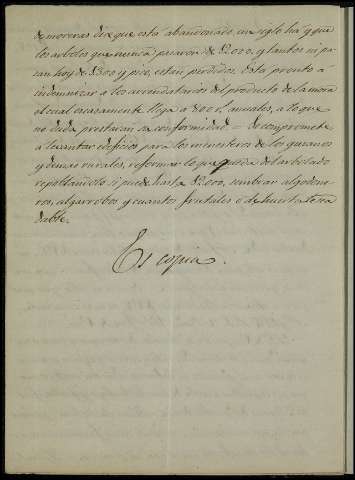 de moreras dix que está abandonado un siglo ha y que
los arboles que nunca pasaron de 12.000, y tantos ni pa-
san hoy de 1.300 y pico, están perdidos. Está pronto á
indemnizar a los arrendatarios del producto de la mora
el cual escasamente llega á 800 rs. anuales, a lo que
no duda prestarán su conformidad = Se compromete
á levantar edificios para los menesteres de los gusanos
y demas rurales, reformar lo que queda del arbolado
repoblandolo si puede hasta 12.000, sembrar algodone-
ros, algarrobos y cuantos frutales ó de huerta le sea
dable.
Es copia.